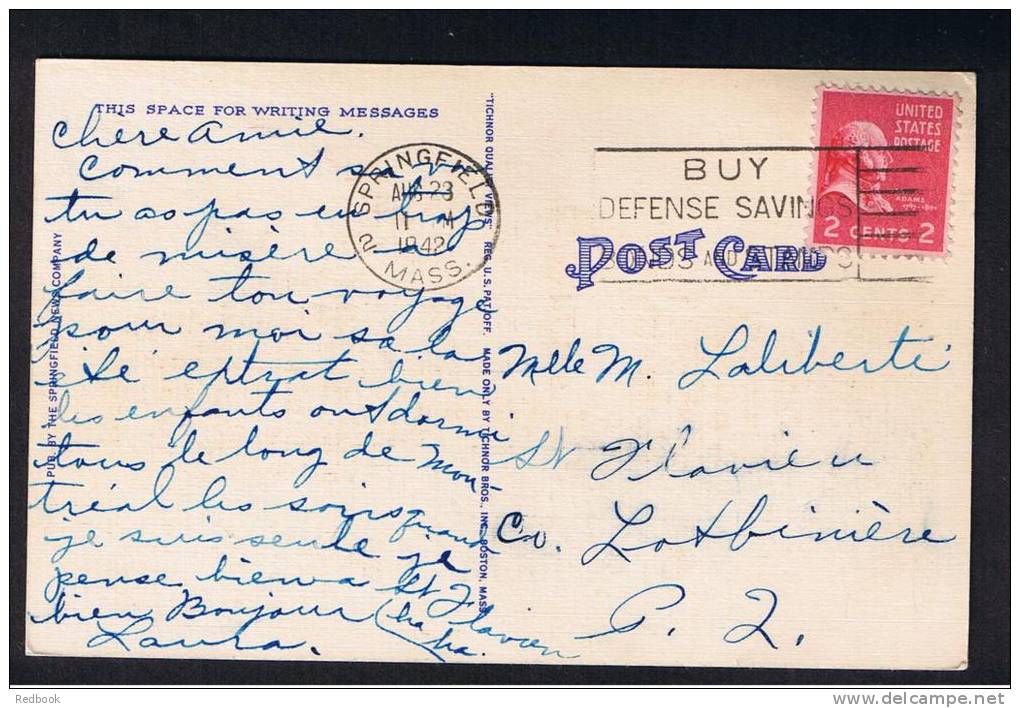 THIS SPACE FOR WRITING MESSAGES
Chère Amie.
Comment
tu as pas eu trop
de misère a
faire ton voyage
pour moi sa la
été extrat bien
les enfants ont dormi
tous le long de Mon-
tréal les soirs quand
je suis seule je
pense bien a St Flavien
bien Bonjour (ha ha.
Laura.
PUB. BY THE SPRINGFIELD NEWS COMPANY
"TICHNOR QUALITY VIEWS" REG. U. S. PAT. OFF. MADE ONLY BY TICHNOR BROS., INC., BOSTON, MASS.
SPRINGFIELD 2
AUG 23
1942
MASS.
BUY
DEFENSE SAVINGS
BONDS AND STAMPS
UNITED
STATES
POSTAGE
ADAMS
2 CENTS 2
POST CARD
Melle M. Laliberté
St Flavien
Co. Lotbinière
P. Q.
Redbook
www.delcampe.net